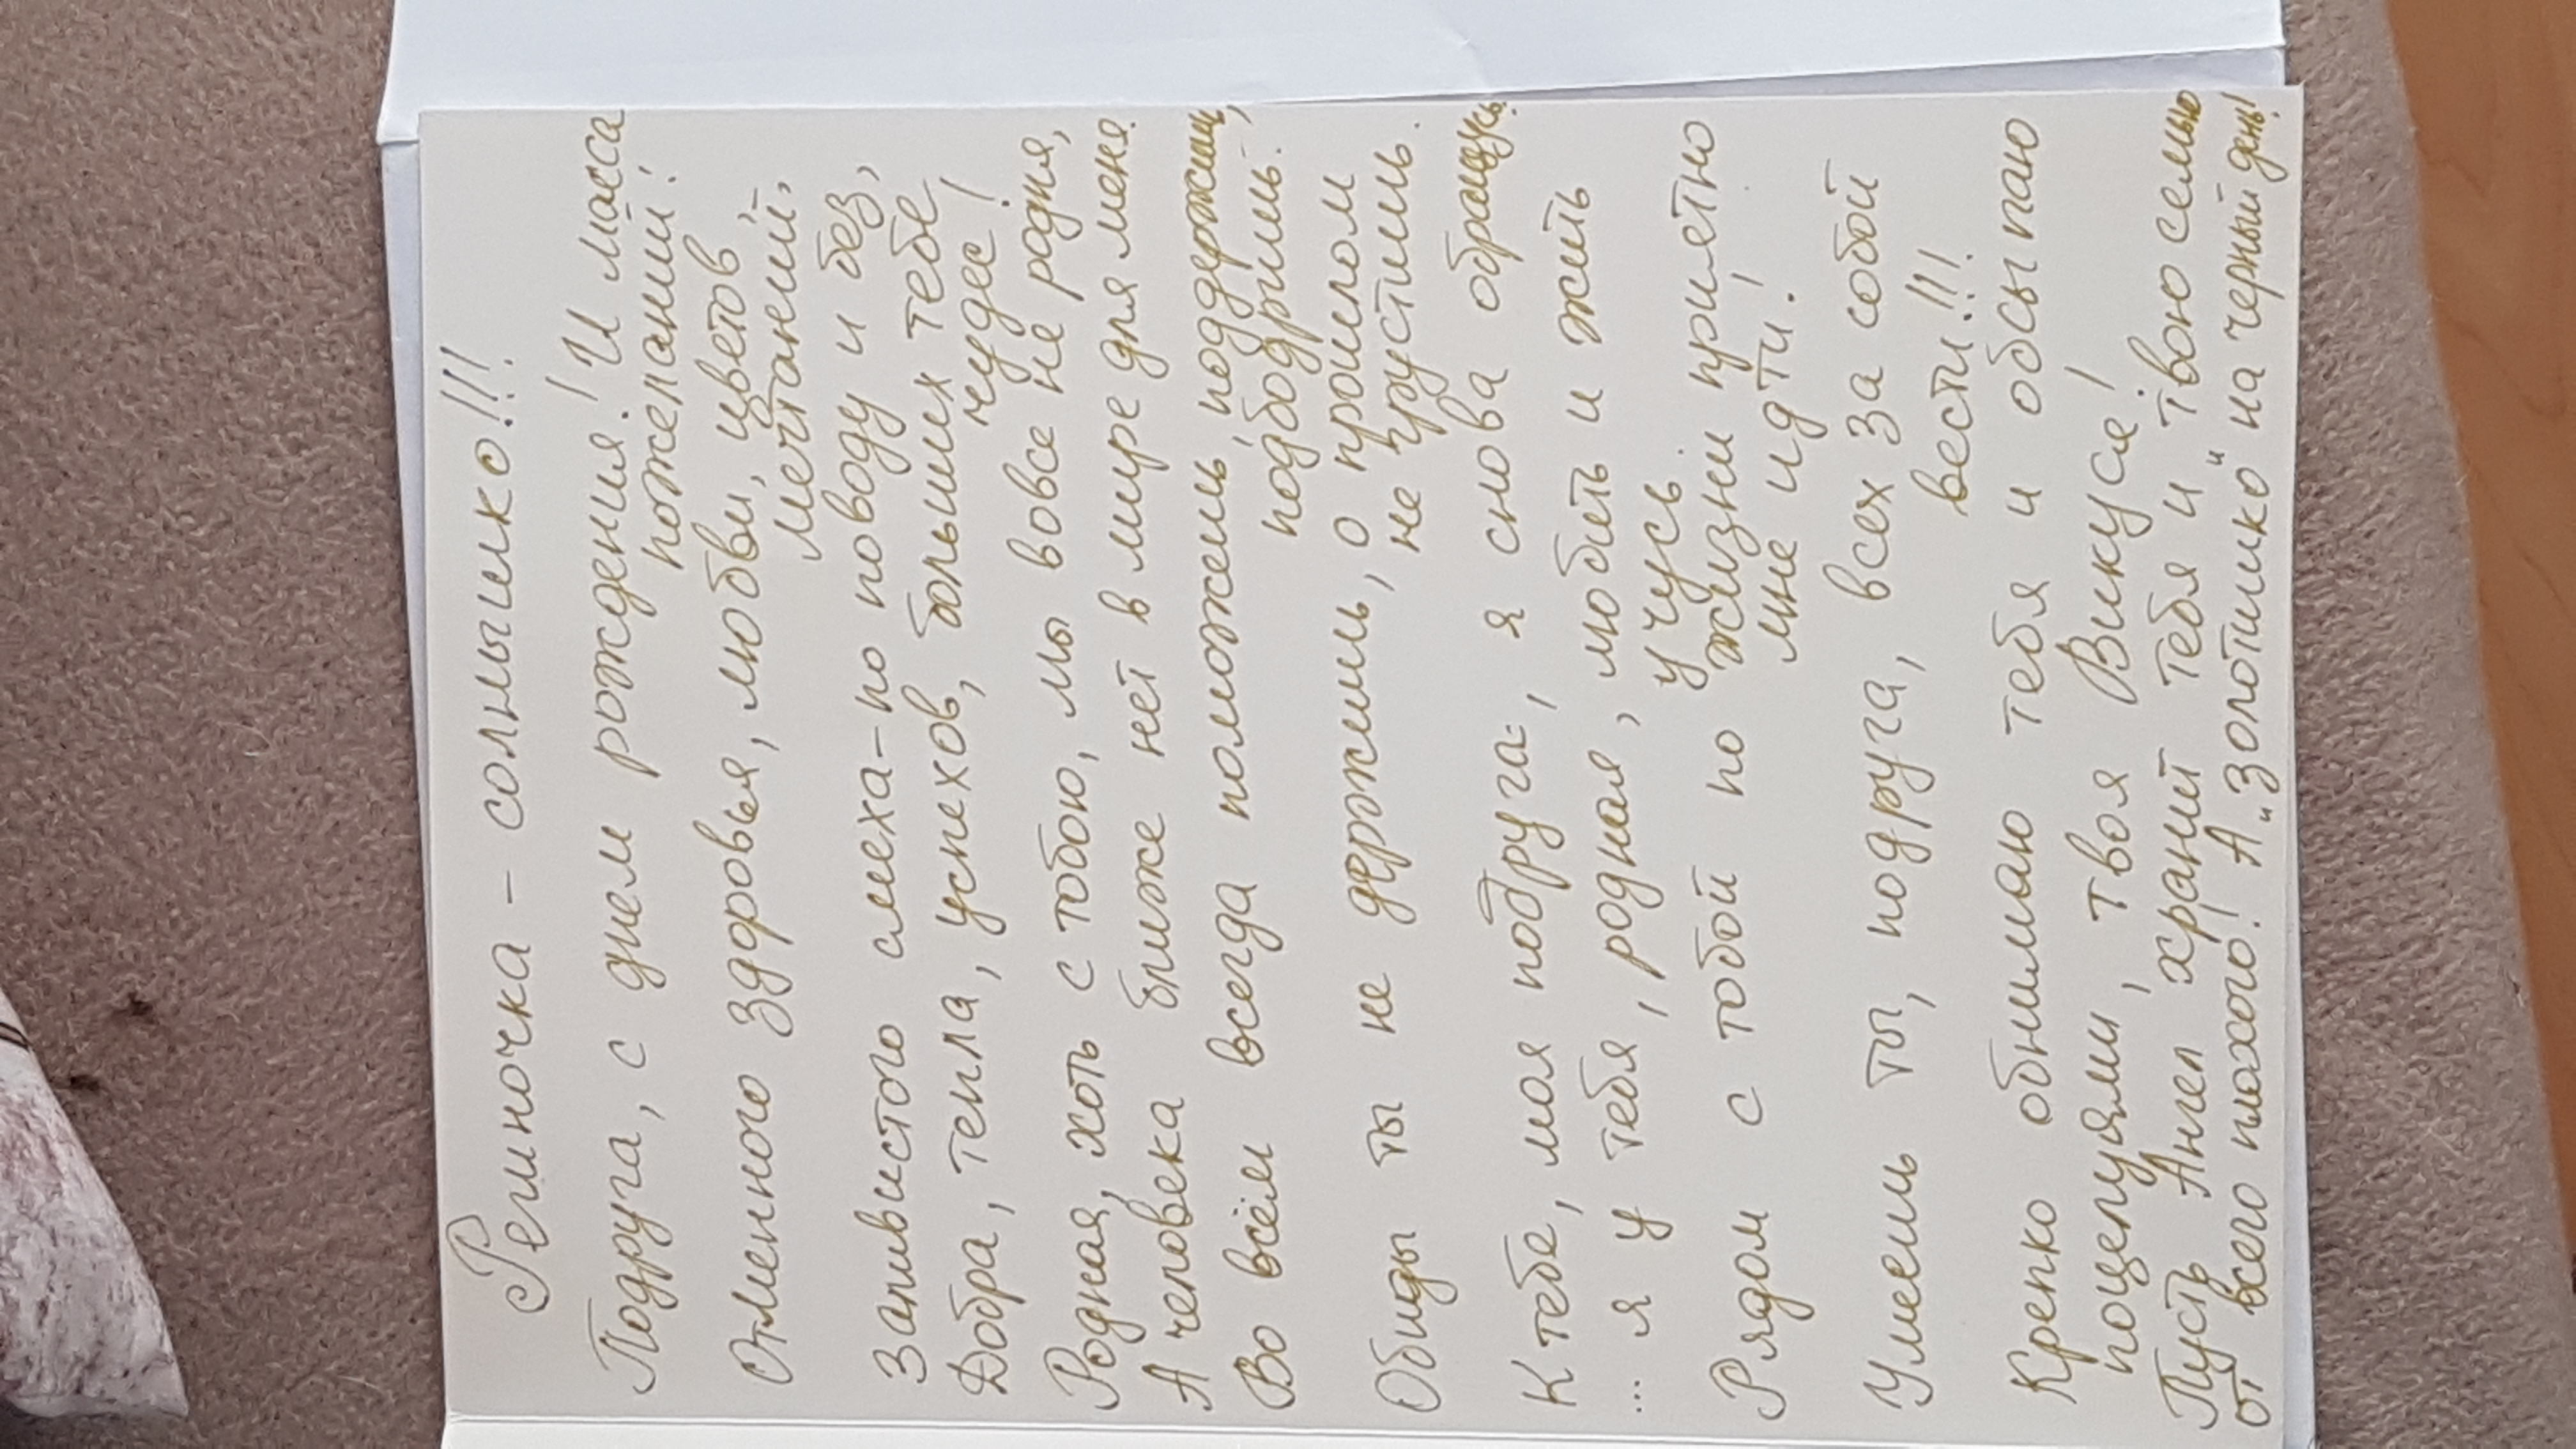 Региночка - солнышко!!!
Подруга, с днем рождения! И масса
пожеланий:
Отменного здоровья, любви, цветов,
мечтаний,
Заливистого смеха-по поводу и без,
Добра, тепла, успехов, больших тебе
чудес!
Родная, хоть с тобою, мы вовсе не родня,
А человека ближе нет в мире для меня.
Во всём всегда поможешь, поддержишь,
подбодришь.
Обиды ты не держишь, о прошлом
не грустишь.
К тебе, моя подруга, я снова обращусь.
... я у тебя, родная, любить и жить
учусь.
Рядом с тобой по жизни приятно
мне идти!
Умеешь ты, подруга, всех за собой
вести!!!
Крепко обнимаю тебя и обсыпаю
поцелуями, твоя Викуся!
Пусть Ангел хранит тебя и твою семью
от всего плохого! А "Золотишко" на черный день!